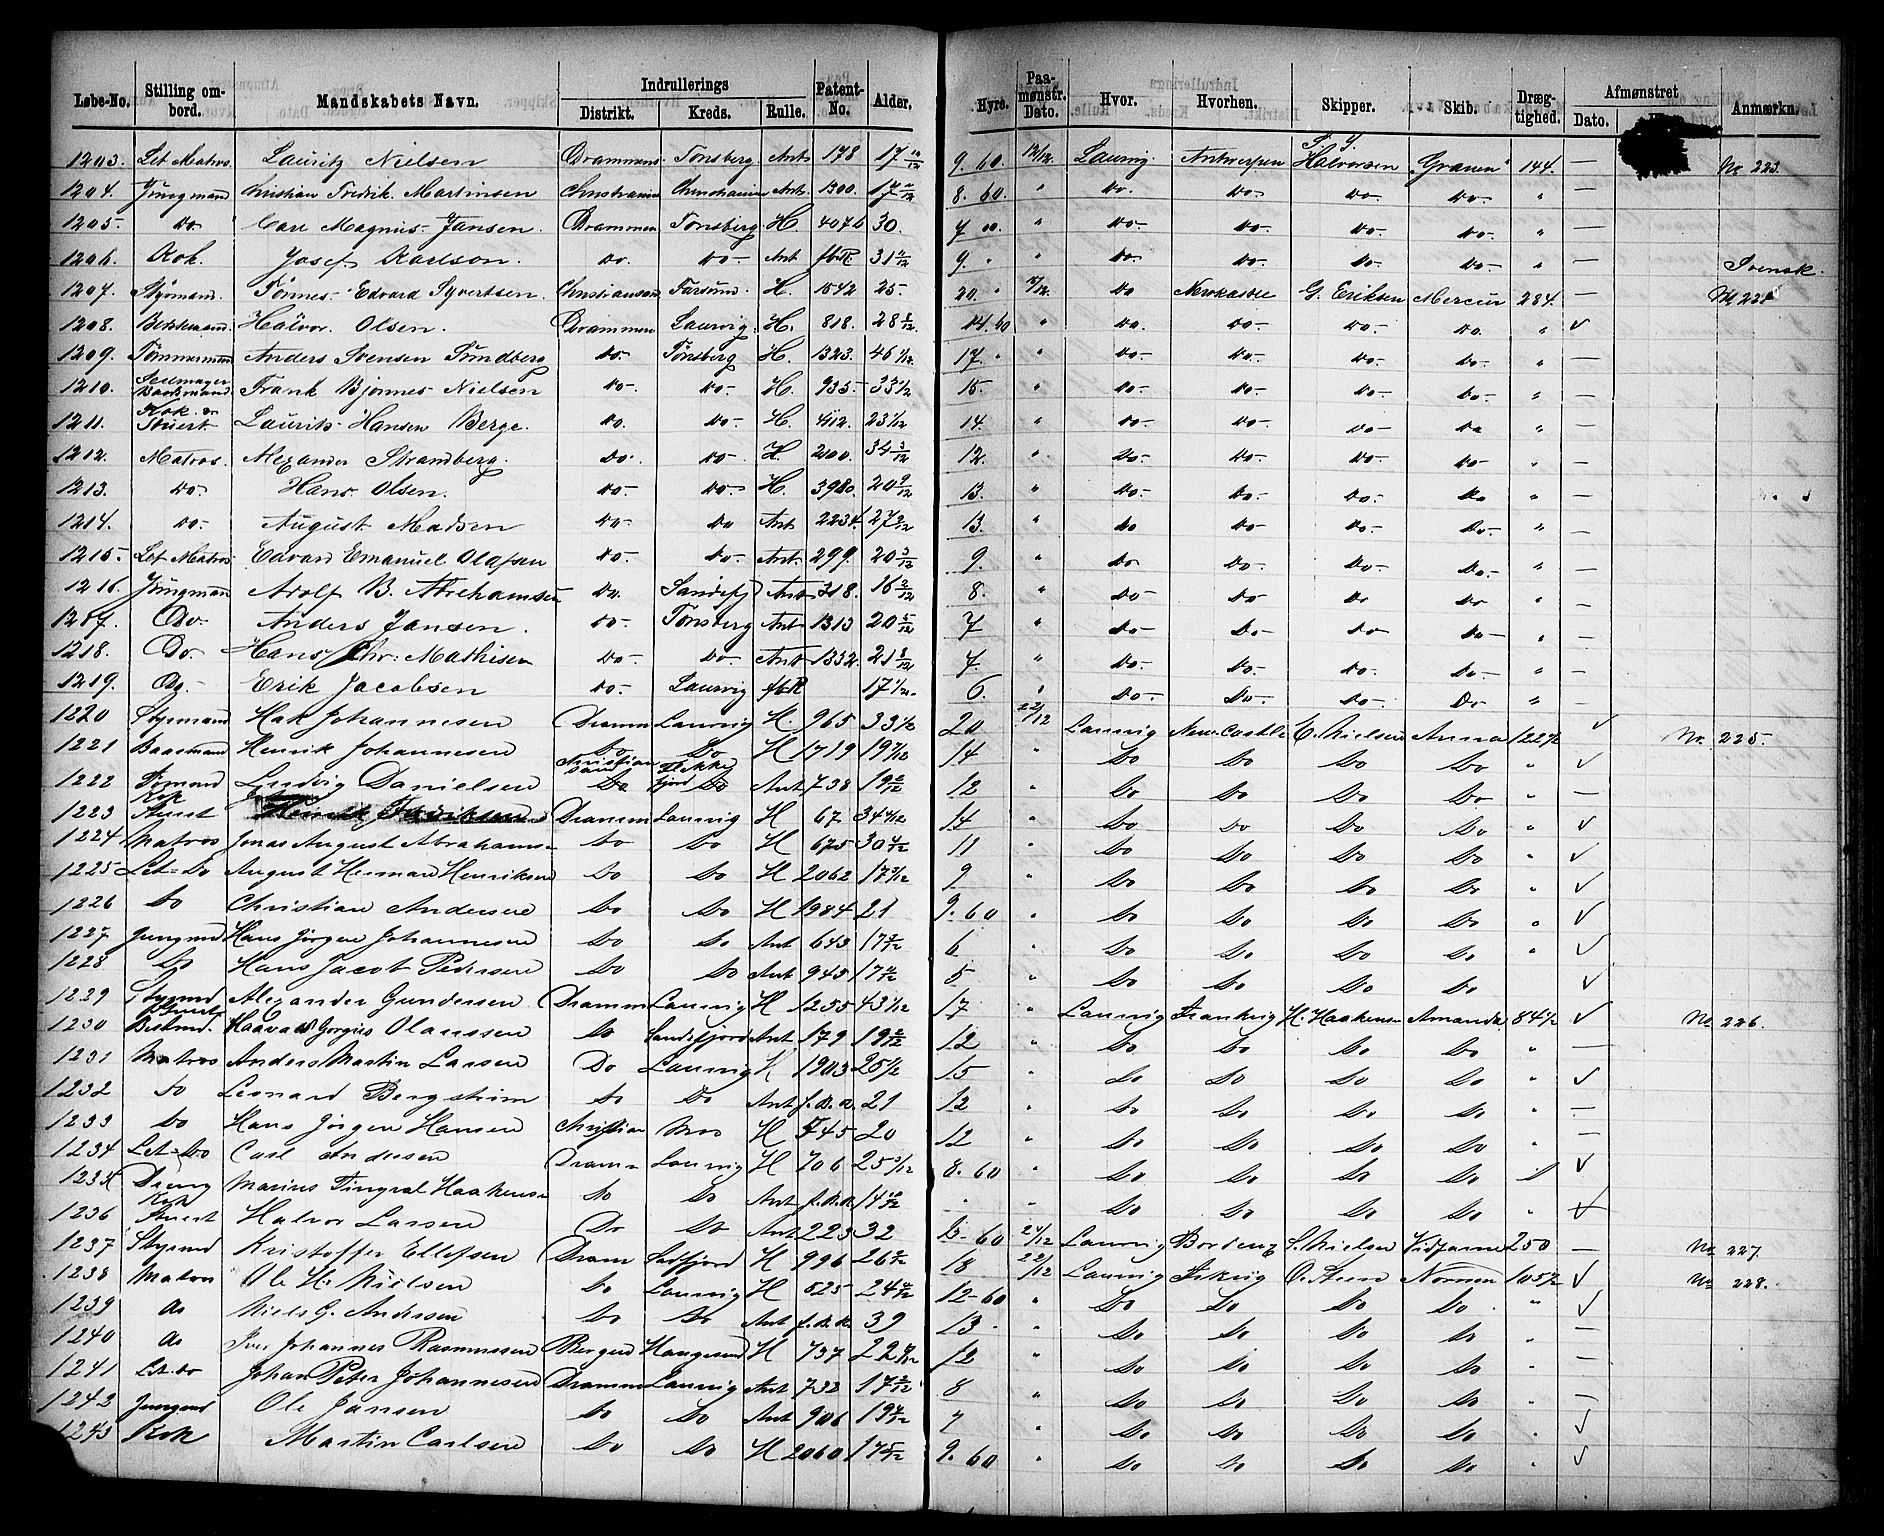 Løbe-No. Stilling ombord. Mandskabets Navn. Indrullerings Distrikt. Kreds. Rulle. Patent-No. Alder. Hyre. Paamønstr. Dato. Hvor. Hvorhen. Skipper. Skib. Drægtighed. Afmønstret Dato. Anmærkn.
1203. Let Matros Lauritz Nielsen Drammens Tønsberg Ant 178 17 9. 60. 12/12. Laurvig. Antwerpen Halvorsen "Granen" 144. — No 223.
1204. Jungmand Kristian Fredrik Martinsen Christiania Christiania Ant. 1300. 17 8. 60. " do. do- do- do- " —
1205. do- Carl Magnus Jansen. Drammen Tønsberg H. 4076 30. 7 " do- do- do- do- " —
1206. Kok. Josef Karlson. do. do- Ant fbR 31 9. " " do- do- do- do- " — Svensk.
1207. Styrmand. Tønnes Edvard Syvertsen. Christiansand Farsund. H. 1542 25. 20. " do Newkastle G. Eriksen Mercur 284. —
1208. Bodsmand. Halvor Olsen. Drammen Laurvig. H. 818. 28 14.60 " do. do- do- do. " ✓
1209. Tømmermand Anders Svensen Sundberg do- Tønsberg H. 1323. 46 1/12. 17 " " do- do- do- do- " —
1210. Seilmager Baadsmand Frank Bjønnes Nielsen do- do- H. 935- 33 15. " do- do- do- do- " —
1211. Kok og Stuert Laurits Hansen Berge. do. do- H. 412. 23 1/12 14. " do- do- do- do " —
1212. Matros. Alexander Strandberg. do. do- H. 200. 34 12. " do- do- do- do- " —
1213. do- Hans Olsen. do- do- H. 3980. 20 9/12 13. " do- do- do- do " —
1214. do- August Madsen do- do Ant. 2234 27 13. " do do- do- do- " —
1215. Let Matros Edvard Emanuel Olafsen do- do- Ant. 299. 20 9. " do do- do- do- " —
1216. Jungmand Adolf B. Abrahamsen do. Sandefj Ant 318. 16 8. " do- do- do do " —
1217. Do- Anders Jansen. do- Tønsberg Ant 1313 20 7 " do- do- do do- " —
1218. Do. Hans Chr. Mathisen do- do- Ant 1332. 21 7. " do- do- do- do- " —
1219. Do- Erik Jacobsen do- Laurvig fbR 17 6. " do- do- do- do " —
1220 Styrmand Hak Johannesen Dramm Laurvig H. 965 33 20 22/12 Laurvig New-Castle C. Nielsen Anna 122 ✓ No. 225.
1221 Baasmand Henrik Johannesen Do Do H 1719 19 7/12 14 " Do Do Do Do " ✓
1222 Ludvig Danielsen Christiansand Flekkefjord Ant 738 19 12 " Do Do Do Do " —
1223 Kok Stuert Henrik Fredriksen Dramm Laurvig H 67 34 14 " Do Do Do Do " ✓
1224 Matros Jonas August Abrahams- Do Do H 675 30 11 " Do Do Do Do " ✓
1225 Let-Do August Herman Henriksen Do Do H 2062 17 9 " Do Do Do Do " ✓
1226 Do Christian Andersen Do Do H 1984 21 9. 60 " Do Do Do Do " ✓
1227 Jungmd Hans Jørgen Johannesen Do Do Ant 643 17 6 " Do Do Do Do " ✓
1228 Do Hans Jacob Pedersen Do Do Ant 945 17 5 " Do Do Do Do " ✓
1229 Styrmd Alexander Gundersen Dramm Laurvig H 1255 43 1/12 17 " Laurvig H. Haakens- Amanda 84 ✓ No 226.
1230 Olaussen Do Sandefjord Ant 179 19 12 " Do Do Do Do " —
1231 Matros Anders Martin Larsen Do Laurvig H 1903 25 15 " Do Do Do Do " ✓
1232 Do Leonard Bergstrøm Do Do Ant 21 12 " Do Do Do Do " —
1233 Do Hans Jørgen Hansen Christian Mos H 745 20 12 " Do Do Do Do " —
1234 Let-Do Carl Andersen Dramm Laurvig H 706 25 8. 60 " Do Do Do Do ✓
1235 Dreng Marius Tingval Haakens- Do Do Ant 14 " Do Do Do Do "
1236 Kok Stuert Halvor Larsen Do Do Ant 223 32 60 24/12 Laurvig S. Nielsen 250 — No 227.
1237 Styrmd Kristoffer Ellefsen Dram H 996 26 18 22/12 Laurvig O. Steen Norman 105 ✓ No 228.
1238 Matros Ole H. Nielsen Do Laurvig H 525 24 12-60 " Do Do Do Do " ✓
1239 Do Niels G. Andersen Do Do Ant 39 13 " Do Do Do Do " —
1240 Do Iver Johannes Rasmussen Bergen Haugesund H 737 22 12 " Do Do Do Do " —
1241 Let-do Johan Peter Johannesen Dramm Laurvig Ant 732 17 8 " Do Do Do Do " —
1242 Jungmd Ole Jansen Do Do Ant 906 19 7 " Do Do Do Do " ✓
1243 Kok Martin Carlsen Do Do H 2060 17 9. 60 " Do Do Do Do " ✓